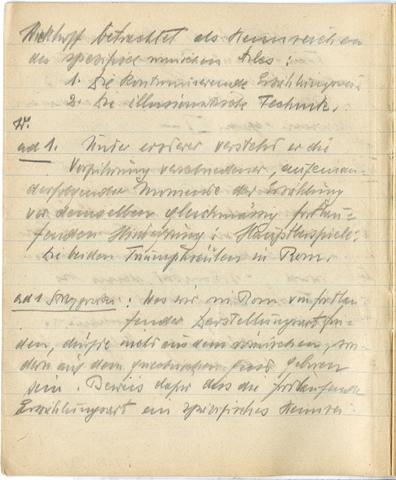 Wickhoff betrachtet als Kennzeichen
des spezifisch römischen Stiles:
1. Die kontinuierende Erzählungsweise
2. Die illusionistische Technik.
ad 1. Unter ersterer versteht er die
Vorführung verschiedener, aufeinan-
derfolgender Momente der Erzählung
vor demselben gleichmässig fortlau-
fenden Hintergrund: Hauptbeispiele:
Die beiden Triumphsäulen in Rom.
ad 1 : Was wir in Rom von fortlau-
fender Darstellungsart fin-
den, dürfte nicht aus dem römischen, son-
dern auf dem griechischen geboren
sein. Beweis dafür dass die fortlaufende
Erzählungsart ein spezifisches Kennzei-